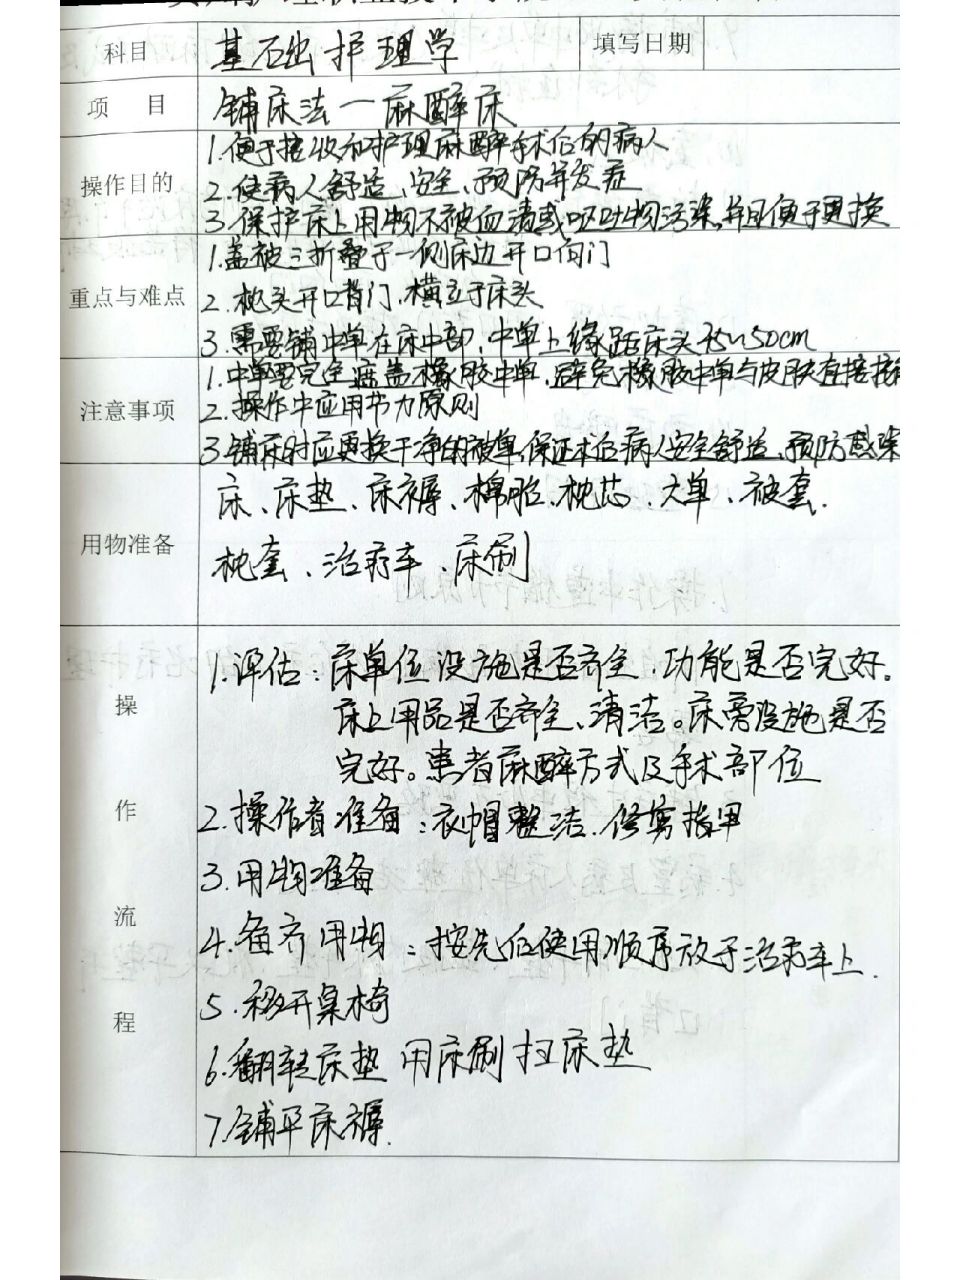 科目 基础护理学 填写日期
项 目 铺床法一麻醉床
操作目的
1.便于接收和护理麻醉手术后的病人
2.使病人舒适、安全、预防并发症
3.保护床上用物不被血渍或呕吐物污染,并且便于更换
重点与难点
1.盖被三折叠于一侧床边开口向门
2.枕头开口背门,横立于床头
3.需要铺中单在床中部,中单上缘距床头45~50cm
注意事项
1.中单要完全遮盖橡胶中单,避免橡胶中单与皮肤直接接
2.操作中应用节力原则
3.铺床时应更换干净的被单,保证术后病人安全舒适、预防感染
用物准备
床、床垫、床褥、棉胎、枕芯、大单、被套.
枕套、治疗车、床刷
操作流程
1.评估:床单位设施是否齐全,功能是否完好。
床上用品是否齐全、清洁。床旁设施是否
完好。患者麻醉方式及手术部位
2.操作者准备:衣帽整洁、修剪指甲
3.用物准备
4.备齐用物:按先后使用顺序放于治疗车上.
5.移开桌椅
6.翻转床垫 用床刷扫床垫
7.铺平床褥.